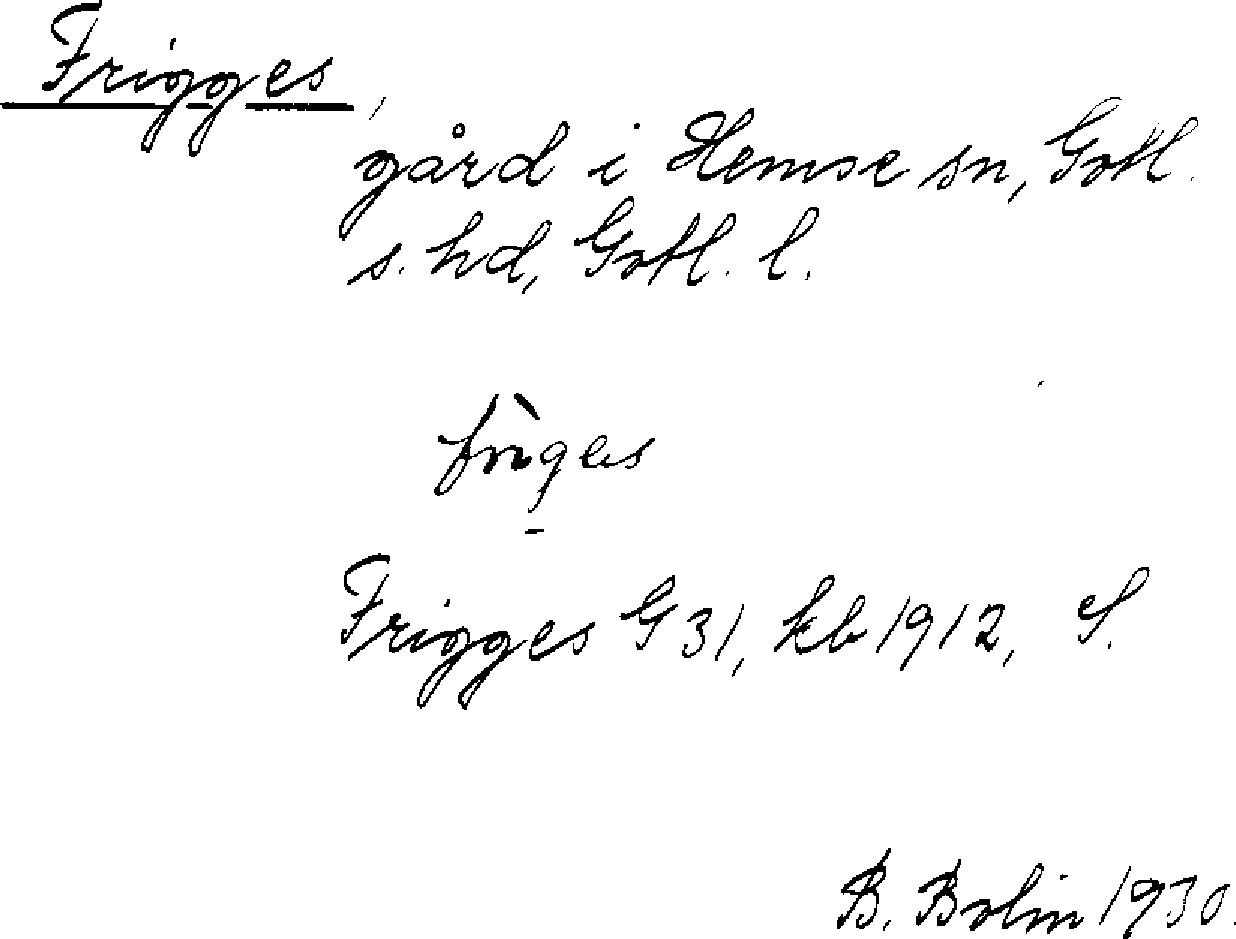 Frigges,
gård i Hemse sn, Gotl.
s. hd, Gotl. l.
frìges
Frigges G 31, kb 1912, S.
B. Bolin 1930.